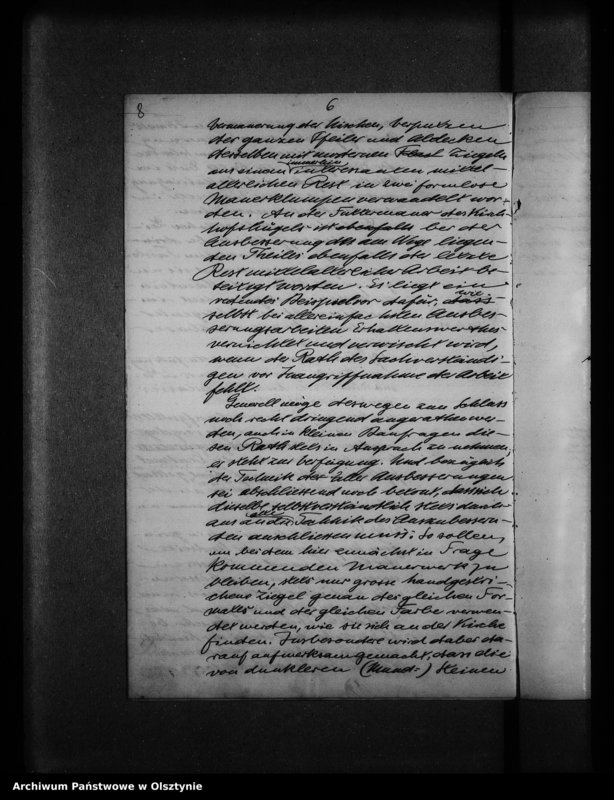 8
6
Vermauerung der Nischen, Verputzen
der ganzen Pfeiler und Abdecken
derselben mit modernen Ziegeln
aus einem immerhin interessanten mittel-
alterlichen Rest in zwei formlose
Mauerklumpen verwandelt wor-
den. An der Futtermauer des Kirch-
hofshügels ist ebenfalls bei der
Ausbesserung des am Wege liegen-
den Theiles ebenfalls der letzte
Rest mittelalterlicher Arbeit be-
seitigt worden. Es liegt ein
redendes Beispiel vor dafür, wie
selbst bei allereinfachsten Ausbes-
serungsarbeiten Erhaltenswerthes
vernichtet und verwischt wird,
wenn der Rath des Sachverständi-
gen vor Inangriffnahme der Arbeit
fehlt.
Generell möge deswegen zum Schluss
noch recht dringend angerathen wer-
den, auch in kleinen Baufragen die-
sen Rath stets in Anspruch zu nehmen,
er steht zur Verfügung. Und bezüglich
der Technik der Ausbesserungen
sei abschliessend noch betont, dass sich
dieselbe selbstverständlich stets durch-
aus an die alte Technik des Auszubessern-
den anschliessen muss. So sollen,
um bei dem hier zunächst in Frage
kommenden Mauerwerk zu
bleiben, stets nur grosse handgestri-
chene Ziegel genau des gleichen For-
mates und der gleichen Farbe verwen-
det werden, wie sie sich an der Kirche
finden. Insbesondere wird dabei da-
rauf aufmerksam gemacht, dass die
von dunkleren (Mund-) Steinen
Archiwum Państwowe w Olsztynie